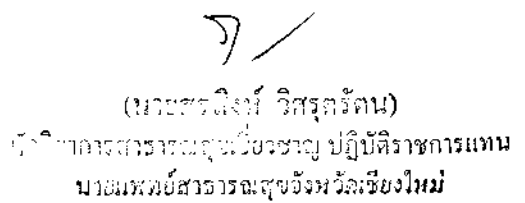 (นายสรสิงห์ วิศรุตรัตน)
นักวิชาการสาธารณสุขเชี่ยวชาญ ปฏิบัติราชการแทน
นายแพทย์สาธารณสุขจังหวัดเชียงใหม่